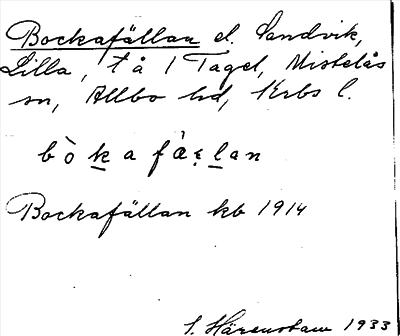 Bockafällan el. Sandvik,
Lilla, t å 1 Tagel, Mistelås
sn, Allbo hd, Krbs l.
bòkafàlan
Bockafällan kb 1914
S. Härenstam 1933